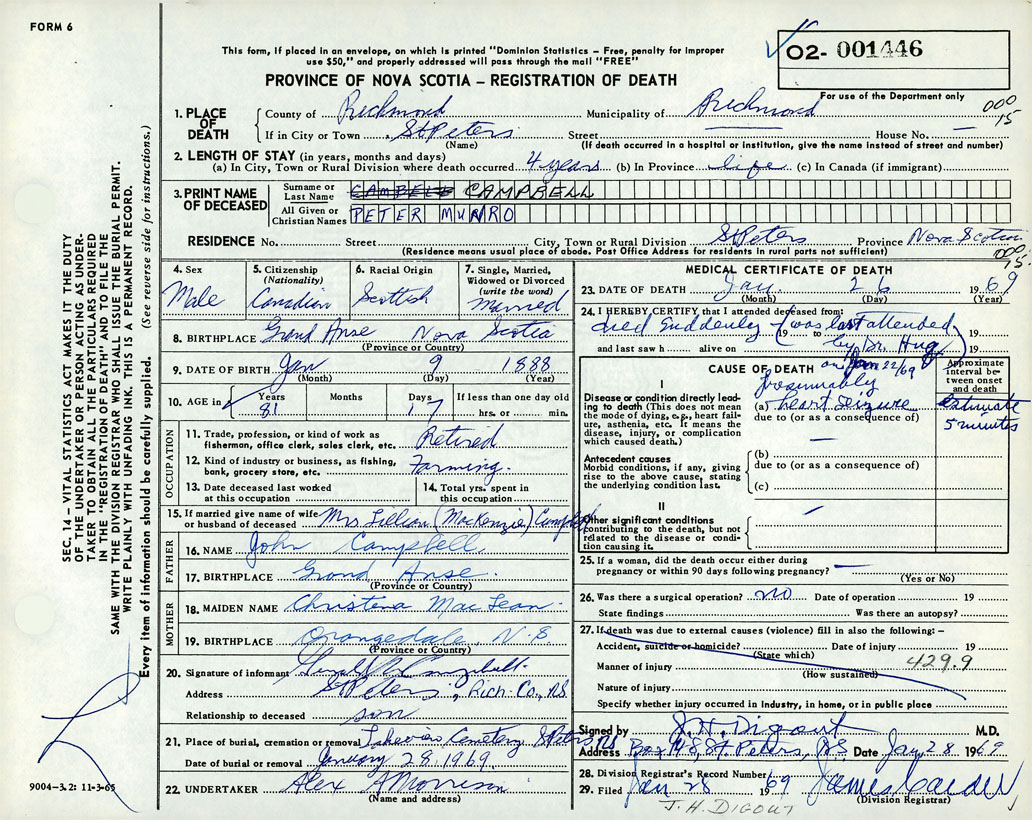 FORM 6
This form, if placed in an envelope, on which is printed "Dominion Statistics – Free, penalty for improper
use $50," and properly addressed will pass through the mail "FREE"
PROVINCE OF NOVA SCOTIA – REGISTRATION OF DEATH
02- 001446
For use of the Department only
000
15
1. PLACE OF DEATH
County of Richmond Municipality of Richmond
If in City or Town St Peters Street — House No. —
(Name) (If death occurred in a hospital or institution, give the name instead of street and number)
2. LENGTH OF STAY (in years, months and days)
(a) In City, Town or Rural Division where death occurred 4 years (b) In Province life (c) In Canada (if immigrant)
3. PRINT NAME OF DECEASED
Surname or Last Name CAMBELL CAMPBELL
All Given or Christian Names PETER MUNRO
RESIDENCE No. Street City, Town or Rural Division St Peters Province Nova Scotia
(Residence means usual place of abode. Post Office Address for residents in rural parts not sufficient)
000
15
4. Sex Male
5. Citizenship (Nationality) Canadian
6. Racial Origin Scottish
7. Single, Married, Widowed or Divorced (write the word) Married
8. BIRTHPLACE Grand Anse Nova Scotia
(Province or Country)
9. DATE OF BIRTH Jan 9 1888
(Month) (Day) (Year)
10. AGE in Years 81 Months Days 17 If less than one day old hrs. or min.
OCCUPATION
11. Trade, profession, or kind of work as fisherman, office clerk, sales clerk, etc. Retired
12. Kind of industry or business, as fishing, bank, grocery store, etc. Farming.
13. Date deceased last worked at this occupation
14. Total yrs. spent in this occupation
15. If married give name of wife or husband of deceased Mrs Lillian (MacKenzie) Campbell
FATHER
16. NAME John Campbell
17. BIRTHPLACE Grand Anse
(Province or Country)
MOTHER
18. MAIDEN NAME Christena MacLean
19. BIRTHPLACE Orangedale, N.S
(Province or Country)
20. Signature of informant Campbell
Address St Peters, Rich. Co., N.S.
Relationship to deceased son
21. Place of burial, cremation or removal Lakeview Cemetery St Peters NS
Date of burial or removal January 28, 1969.
22. UNDERTAKER Alex A Morrison
(Name and address)
MEDICAL CERTIFICATE OF DEATH
23. DATE OF DEATH Jan 26 1969
(Month) (Day) (Year)
24. I HEREBY CERTIFY that I attended deceased from:
died suddenly (was last attended
19 to 19
by Dr. Hug
and last saw h alive on 19
on Jan 22/69)
CAUSE OF DEATH
Approximate interval between onset and death
I
Disease or condition directly leading to death (This does not mean the mode of dying, e.g., heart failure, asthenia, etc. It means the disease, injury, or complication which caused death.)
presumably
(a) heart seizure
due to (or as a consequence of)
estimate
5 minutes
Antecedent causes
Morbid conditions, if any, giving rise to the above cause, stating the underlying condition last.
(b)
due to (or as a consequence of)
(c)
II
Other significant conditions contributing to the death, but not related to the disease or condition causing it.
25. If a woman, did the death occur either during pregnancy or within 90 days following pregnancy? —
(Yes or No)
26. Was there a surgical operation? no Date of operation 19
State findings Was there an autopsy?
27. If death was due to external causes (violence) fill in also the following: –
Accident, suicide or homicide? Date of injury 19
(State which)
429.9
Manner of injury
(How sustained)
Nature of injury
Specify whether injury occurred in industry, in home, or in public place
Signed by J. H. Digout M.D.
Address Box 148, St. Peters, NS Date Jan 28 1969
28. Division Registrar's Record Number
29. Filed Jan 28 1969 James Calder
(Division Registrar)
J. H. DIGOUT
SEC. 14 – VITAL STATISTICS ACT MAKES IT THE DUTY
OF THE UNDERTAKER OR PERSON ACTING AS UNDER-
TAKER TO OBTAIN ALL THE PARTICULARS REQUIRED
IN THE "REGISTRATION OF DEATH" AND TO FILE THE
SAME WITH THE DIVISION REGISTRAR WHO SHALL ISSUE THE BURIAL PERMIT.
WRITE PLAINLY WITH UNFADING INK. THIS IS A PERMANENT RECORD.
Every item of information should be carefully supplied. (See reverse side for instructions.)
9004-3.2: 11-3-65